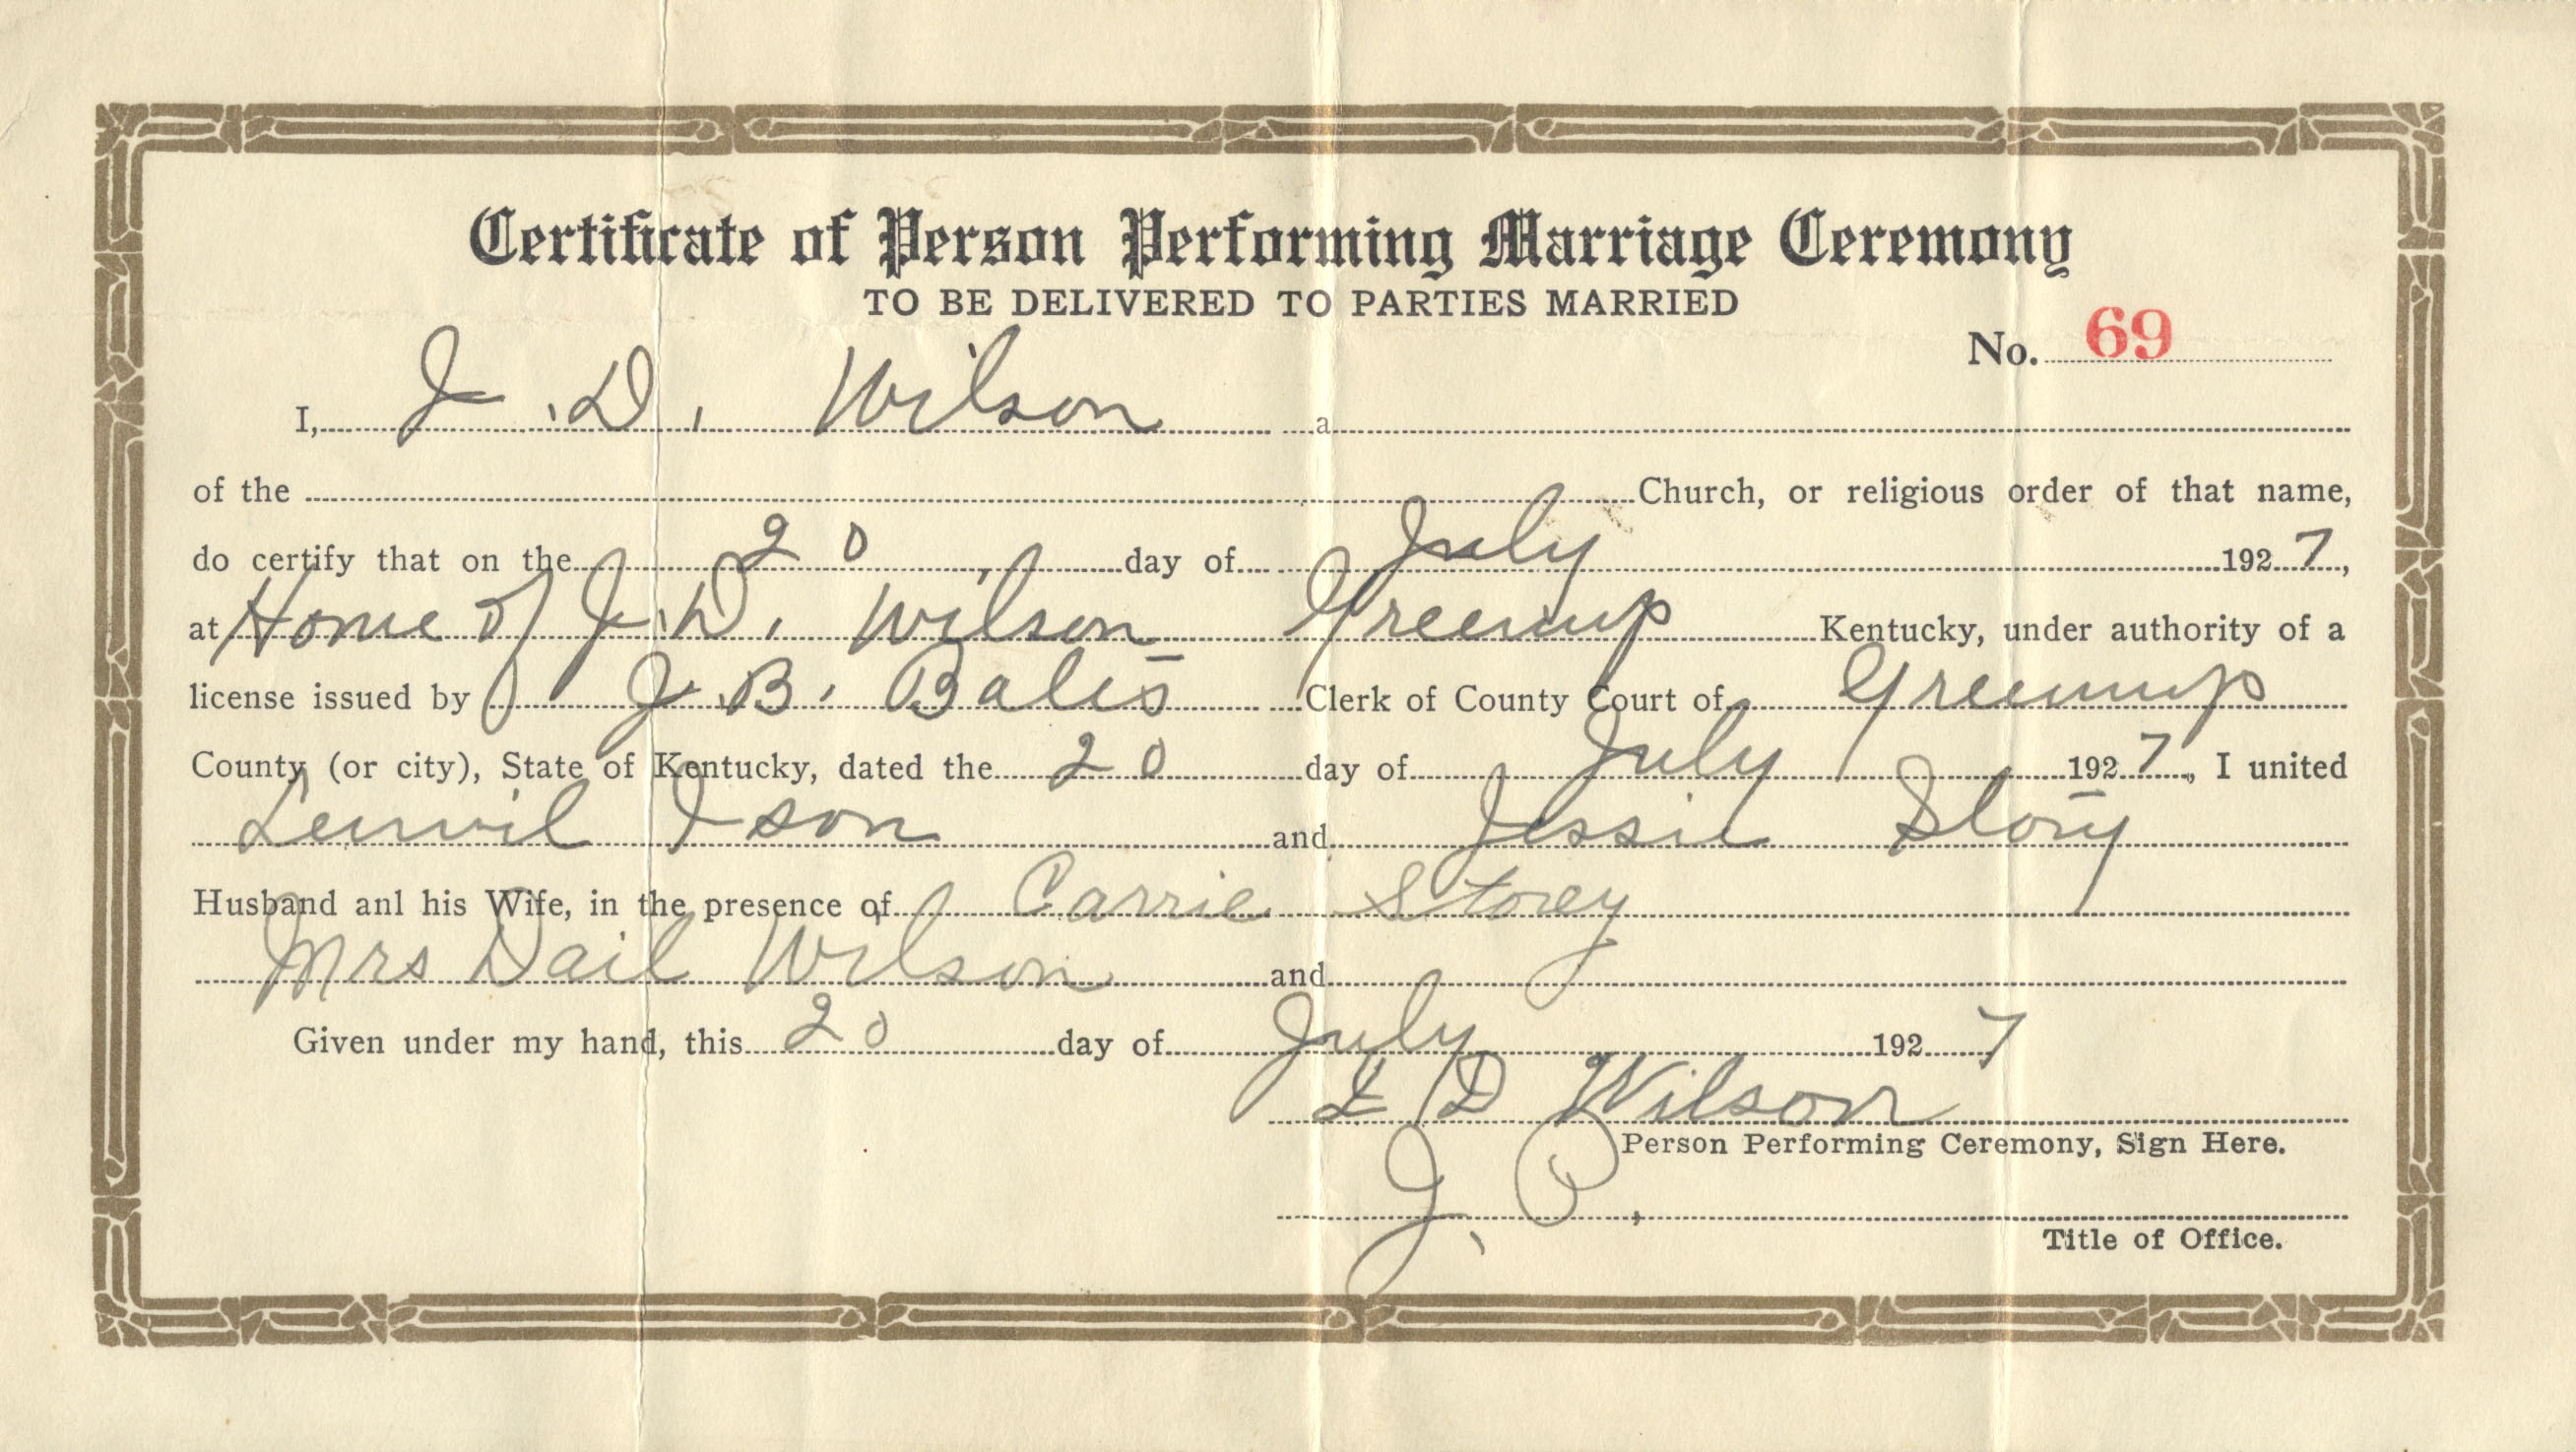 Certificate of Person Performing Marriage Ceremony
TO BE DELIVERED TO PARTIES MARRIED
No. 69
I, J. D. Wilson a
of the Church, or religious order of that name,
do certify that on the 20, day of July 1927,
at Home of J. D. Wilson Greenup Kentucky, under authority of a
license issued by J. B. Bates Clerk of County Court of Greenup
County (or city), State of Kentucky, dated the 20 day of July 1927, I united
Lemvil Ison and Jessie Story
Husband anl his Wife, in the presence of Carrie Storey
Mrs Dail Wilson and
Given under my hand, this 20 day of July 1927
D Wilson
Person Performing Ceremony, Sign Here.
J. P.
Title of Office.